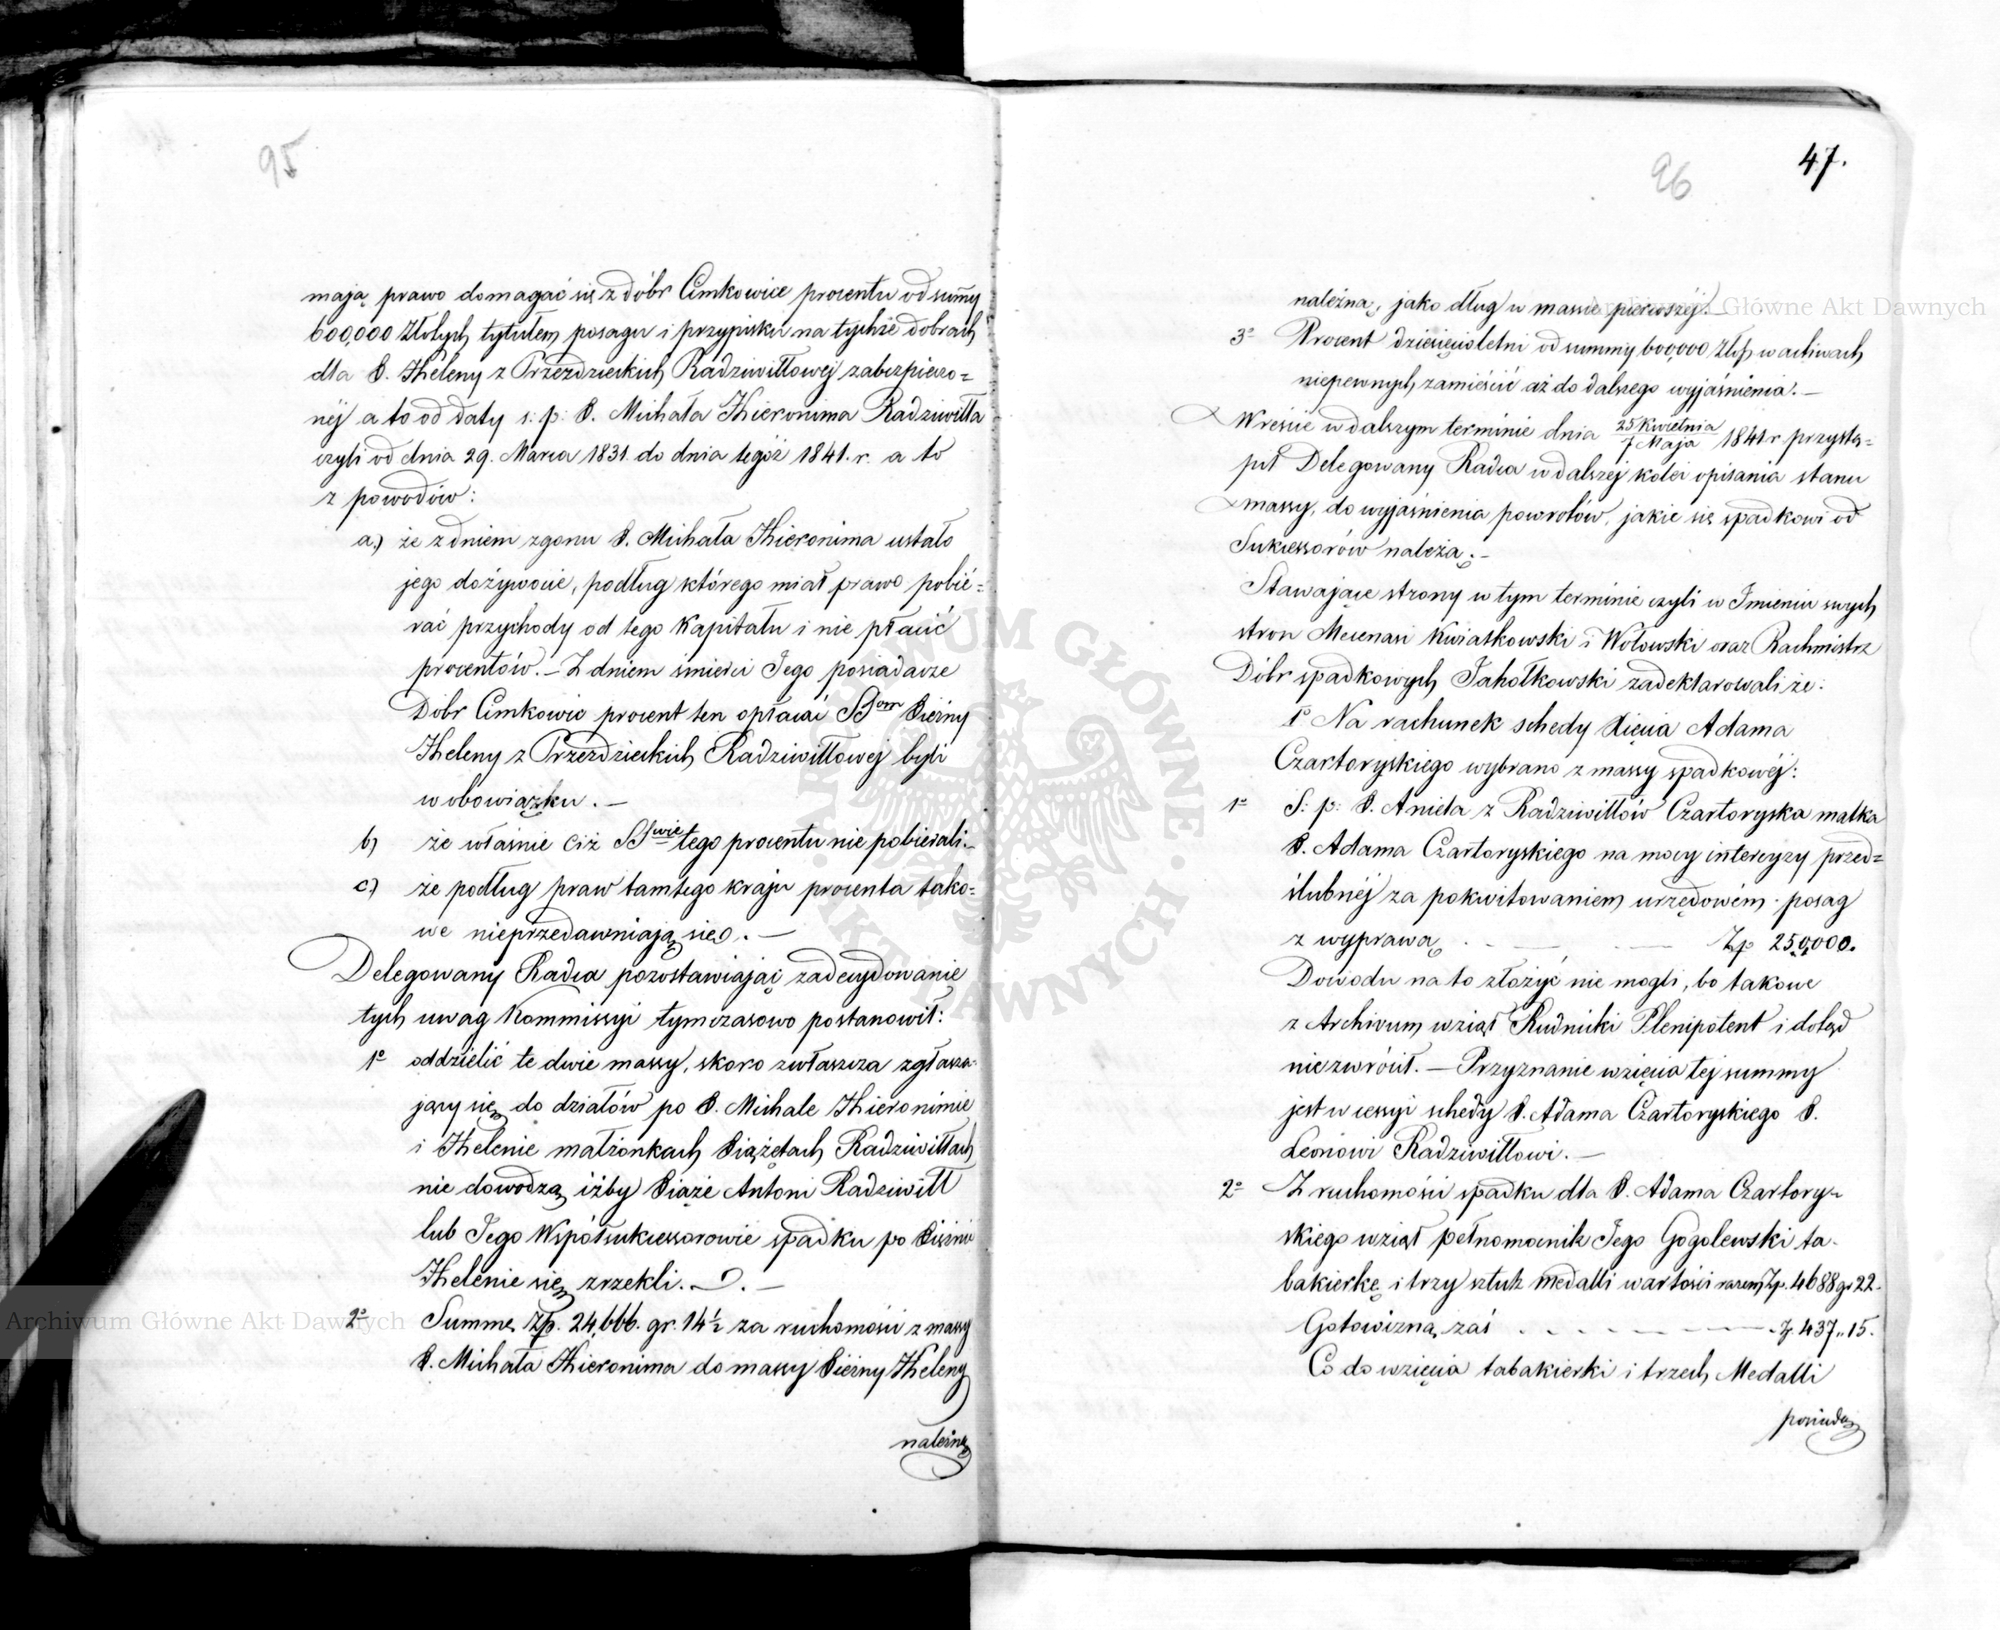 95
mają prawo domagać się z dóbr Cimkowice procentu od summy
600,000 Złotych tytułem posagu i przypisku na tychże dobrach
dla X. Heleny z Przezdzieckich Radziwiłłowej zabezpieczo=
néj a to od daty ś: p: X. Michała Hieronima Radziwiłła
czyli od dnia 29. Marca 1831 do dnia tegóż 1841. r. a to
z powodów:
a.) że z dniem zgonu X. Michała Hieronima ustało
jego dożywocie, podług którego miał prawo pobié=
rać przychody od tego Kapitału i nie płacić
procentów. – Z dniem śmierci Jego posiadacze
Dóbr Cimkowic procent ten opłacać SSom Xiężny
Heleny z Przezdzieckich Radziwiłłowej byli
w obowiązku. –
b) że właśnie ciż SSwie tego procentu nie pobierali. –
c.) że podług praw tamtego kraju procenta tako=
we nieprzedawniają się. –
Delegowany Radca pozostawiając zadecydowanie
tych uwag Kommissyi tymczasowo postanowił:
1º oddzielić te dwie massy, skoro zwłaszcza zgłasza=
jący się do działów po X. Michale Hieronimie
i Helenie małżonkach Xiążętach Radziwiłłach
nie dowodzą iżby Xiąże Antoni Radziwiłł
lub Jego Współsukcessorowie spadku po Xiężnie
Helenie się zrzekli. –
2º Summę Złp. 24,666. gr. 14½ za ruchomości z massy
X. Michała Hieronima do massy Xiężny Heleny
należną
96
47.
należną, jako dług w massie pierwszéj. –
3º Procent dziesięcioletni od summy 600,000 Złtp w activach
niepewnych zamieścić aż do dalszego wyjaśnienia. –
Wreście w dalszym terminie dnia 25 Kwietnia / 7 Maja 1841 r przystą=
pił Delegowany Radca w dalszej kolei opisania stanu
massy, do wyjaśnienia powrotów, jakie się spadkowi od
Sukcessorów należą. –
Stawające strony w tym terminie czyli w Imieniu swych
stron Mecenasi Kwiatkowski i Wołowski oraz Rachmistrz
Dóbr spadkowych Jahołkowski zadeklarowali że:
1º Na rachunek schedy Xięcia Adama
Czartoryskiego wybrano z massy spadkowéj:
1º Ś: p: X. Aniela z Radziwiłłów Czartoryska matka
X. Adama Czartoryskiego na mocy intercyzy przed=
ślubnéj za pokwitowaniem urzędowém posag
z wyprawą . – – Złp 250,000.
Dowodu na to złożyć nie mogli, bo takowe
z Archivum wziął Rudnicki Plenipotent i dotąd
nie zwrócił. – Przyznanie wzięcia tej summy
jest w cessyi schedy X. Adama Czartoryskiego X.
Leonowi Radziwiłłowi. –
2º Z ruchomości spadku dla X. Adama Czartory=
skiego wziął pełnomocnik Jego Gogolewski ta=
bakierkę i trzy sztuk medalli wartości razem Złp. 4688 gr 22.
Gotowizną zaś . . – – – – Zł 437„ 15.
Co do wzięcia tabakierki i trzech Medalli
posiadają
Archiwum Główne Akt Dawnych
Archiwum Główne Akt Dawnych
ARCHIWUM GŁÓWNE · AKT DAWNYCH ·